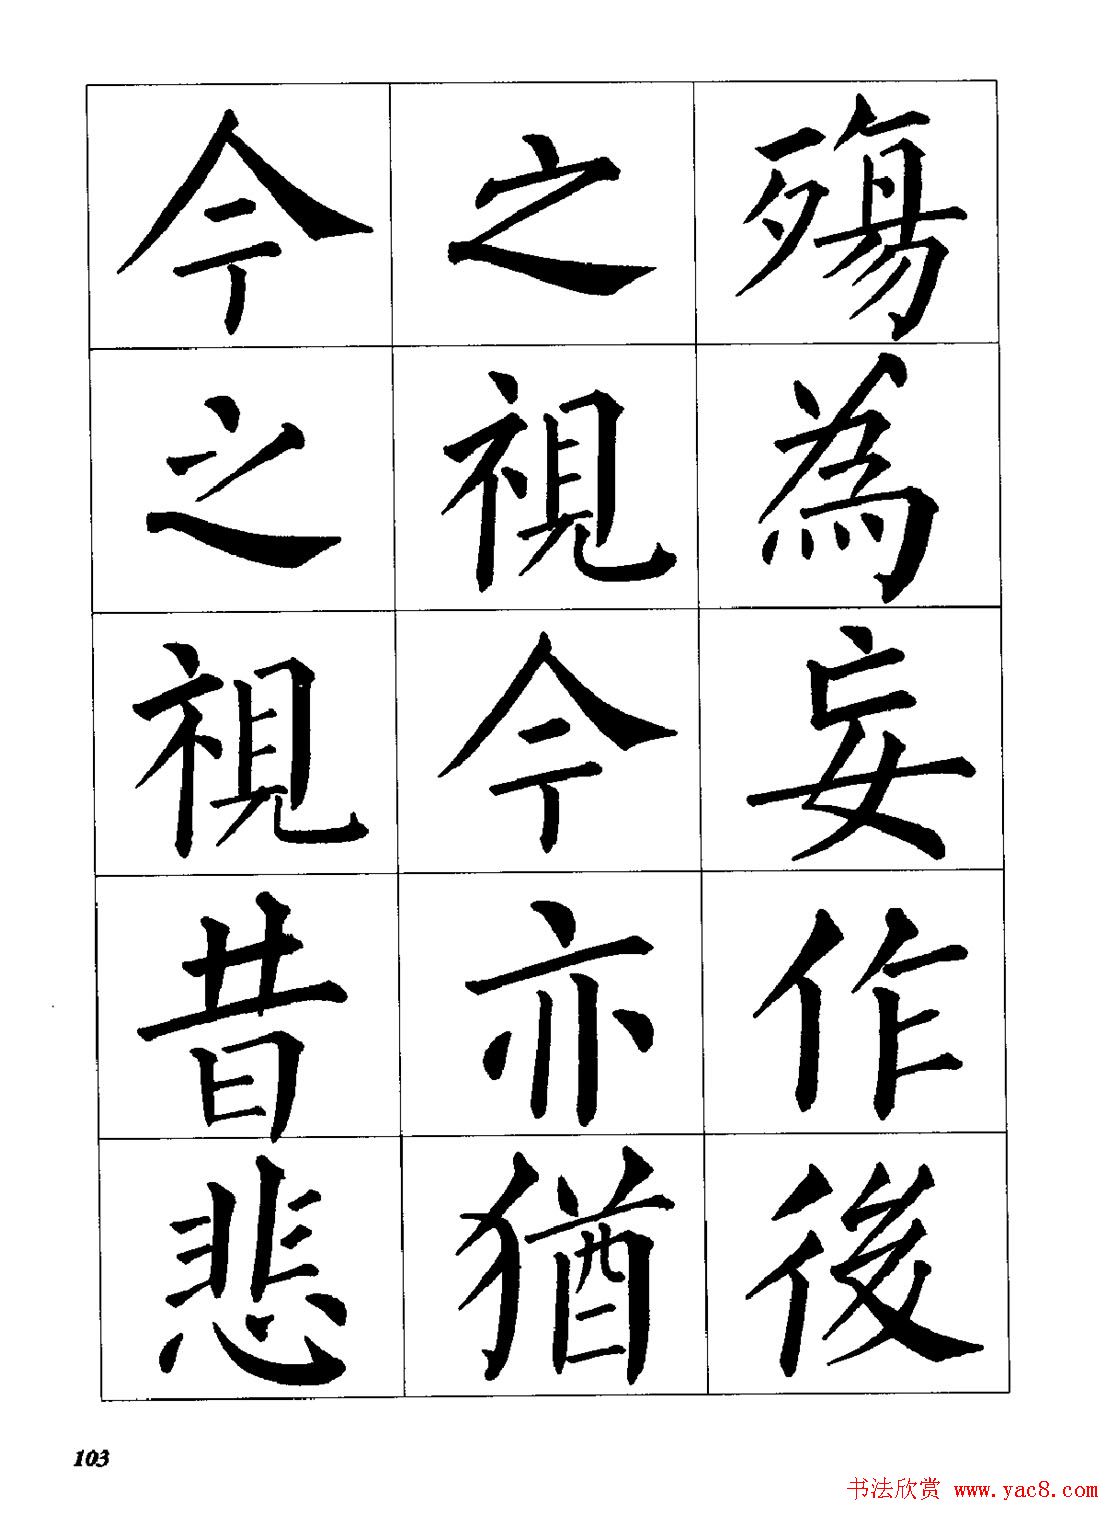 殤為妄作後
之視今亦猶
今之視昔悲
103
书法欣赏 www.yac8.com